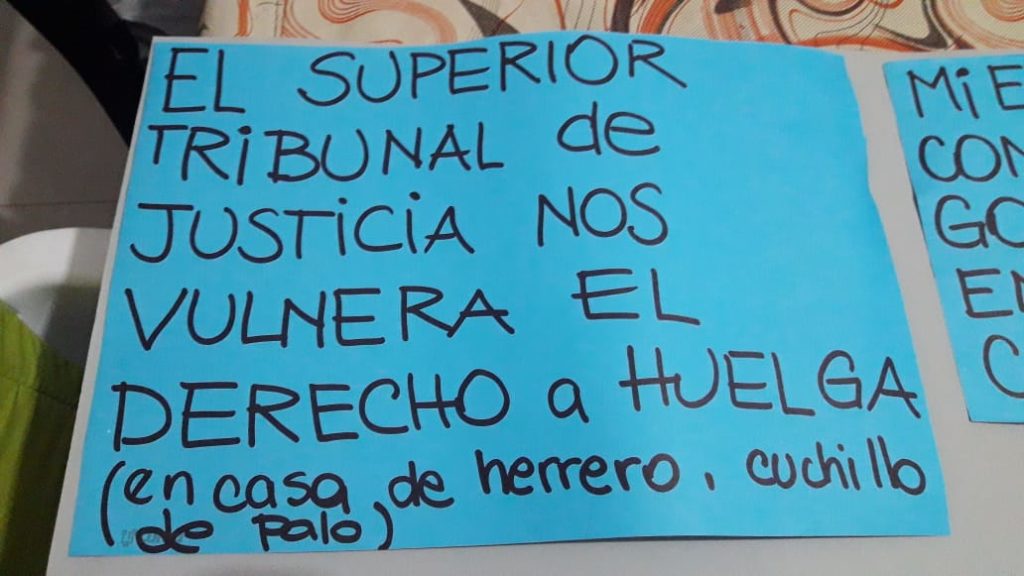 EL SUPERIOR
TRiBUNAL de
JUSTiCiA NOS
VULNERA EL
DERECHO a HUELGA
(en casa de herrero, cuchillo
de palo)
Mi E
CON
GO
EN
C